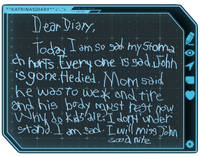 **KATRINASDIARY**
Dear Diary,
Today I am so sad my stoma
ch hurts Every one is sad John
is gone. He died. Mom said
he was to weak and tire
and his body must rest now
Why do kids die. I dont under
stand. I am sad. I will miss John
good nite